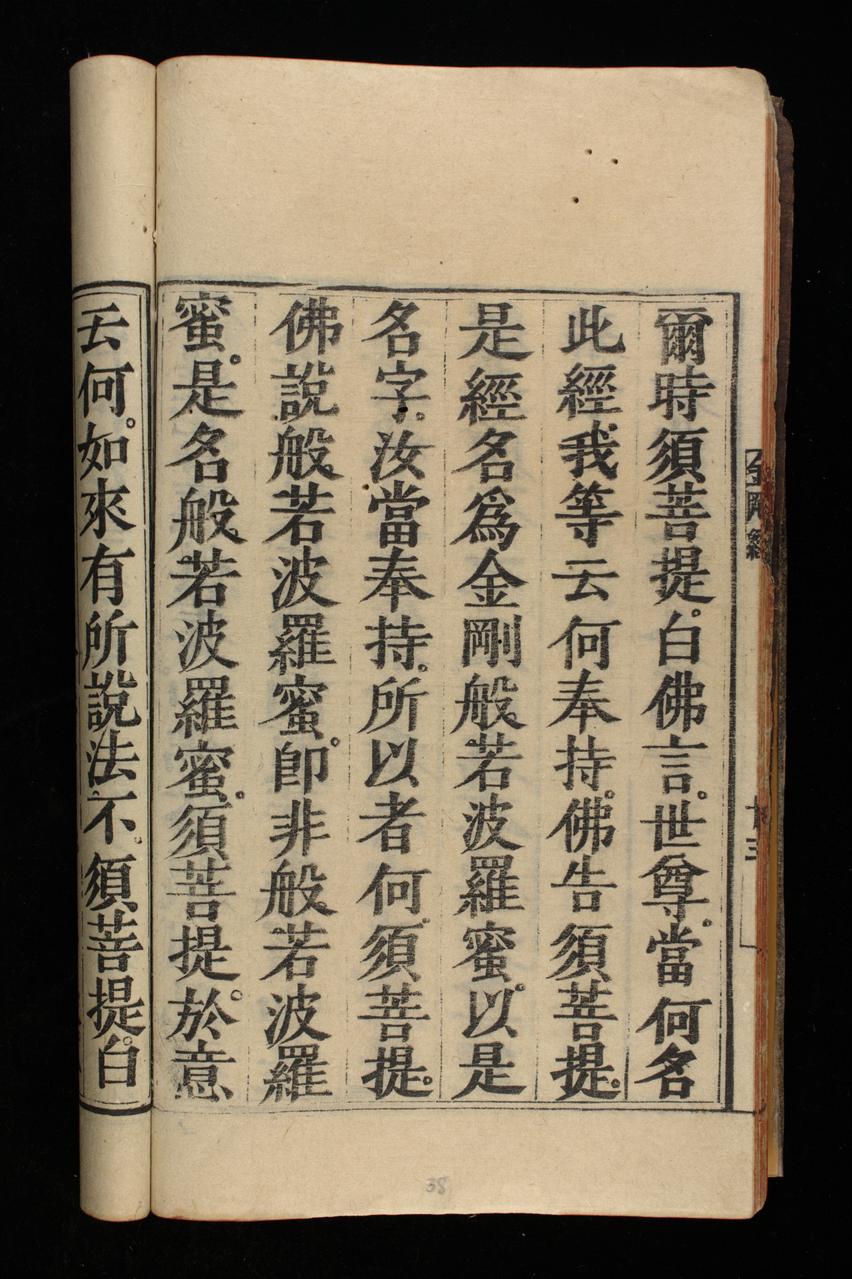 爾時須菩提。白佛言。世尊。當何名
此經。我等云何奉持。佛告須菩提。
是經名爲金剛般若波羅蜜。以是
名字。汝當奉持。所以者何。須菩提。
佛說般若波羅蜜。卽非般若波羅
蜜。是名般若波羅蜜。須菩提。於意
云何。如來有所說法不。須菩提。白
金剛經
廿三
38